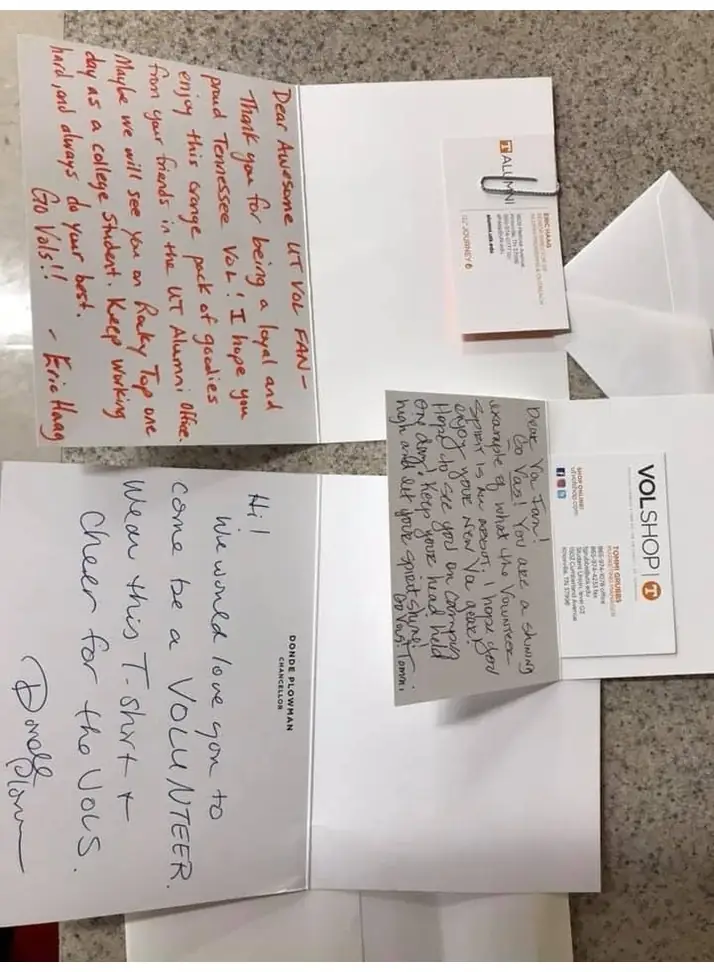 Dear Awesome UT VOL FAN-
Thank you for being a loyal and
proud Tennessee Vol! I hope you
enjoy this orange pack of goodies
from your friends in the UT Alumni Office.
Maybe we will see you on Rocky Top one
day as a college student. Keep working
hard, and always do your best.
Go Vols!!
- Eric Haag
ALUMNI
ERIC HAAG
Knoxville, TN 37996
alumni.utk.edu
JOURNEY
Dear Vol Fan!
Go Vols! You are a shining
example of what the Volunteer
spirit is all about. I hope you
enjoy your new Vol gear!
Hope to see you on campus
one day! Keep your head held
high and let your spirit shine!
Go Vols! Tommi
VOLSHOP
TOMMI GRUBBS
MARKETING MANAGER
office
865-974-4233 fax
Student Union, level 02
1502 Cumberland Avenue
Knoxville, TN 37996
SHOP ONLINE!
utvolshop.com
DONDE PLOWMAN
CHANCELLOR
Hi!
We would love you to
come be a VOLUNTEER.
Wear this T-shirt +
cheer for the Vols.
Donde
Plowman